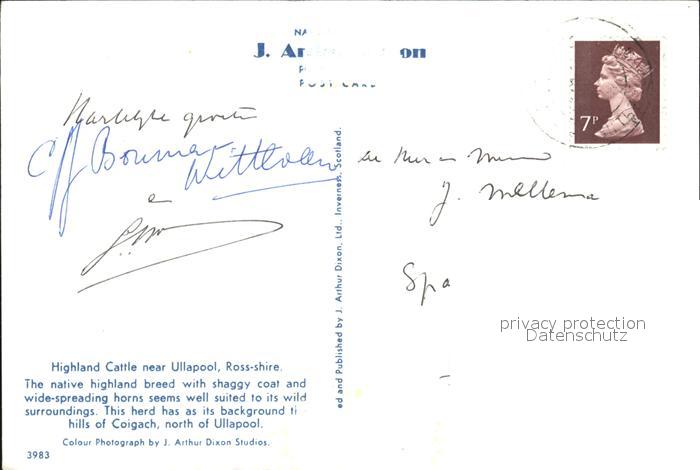 NA
J. Ar on
P
POST CARD
Hartelijke groeten
CJJ Bouma-
Wittteveen
en
de Heer en Mevr
J. Mellema
Spa
7P
ed and Published by J. Arthur Dixon, Ltd., Inverness, Scotland.
privacy protection
Datenschutz
Highland Cattle near Ullapool, Ross-shire.
The native highland breed with shaggy coat and
wide-spreading horns seems well suited to its wild
surroundings. This herd has as its background t
hills of Coigach, north of Ullapool.
Colour Photograph by J. Arthur Dixon Studios.
3983